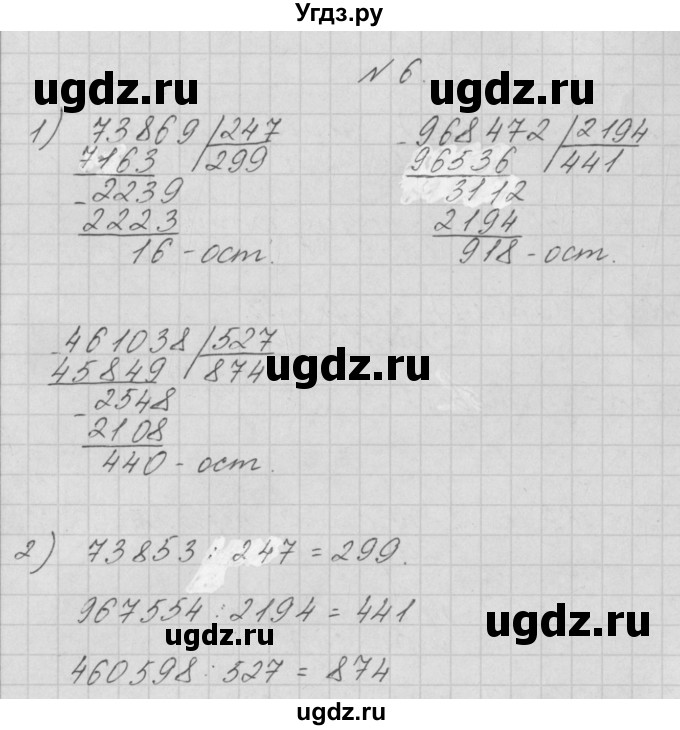 Угдз.ру
№ 6.
ugdz.ru
ugdz.ru
1) 73869 | 247
7163 | 299
- 2239
2223
16 - ост.
- 968472 | 2194
96536 | 441
3112
2194
918 - ост.
- 461038 | 527
45849 | 874
- 2548
2108
440 - ост.
ugdz.ru
2) 73853 : 247 = 299.
967554 : 2194 = 441
460598 : 527 = 874
ugdz.ru
ugdz.ru
ugdz.ru